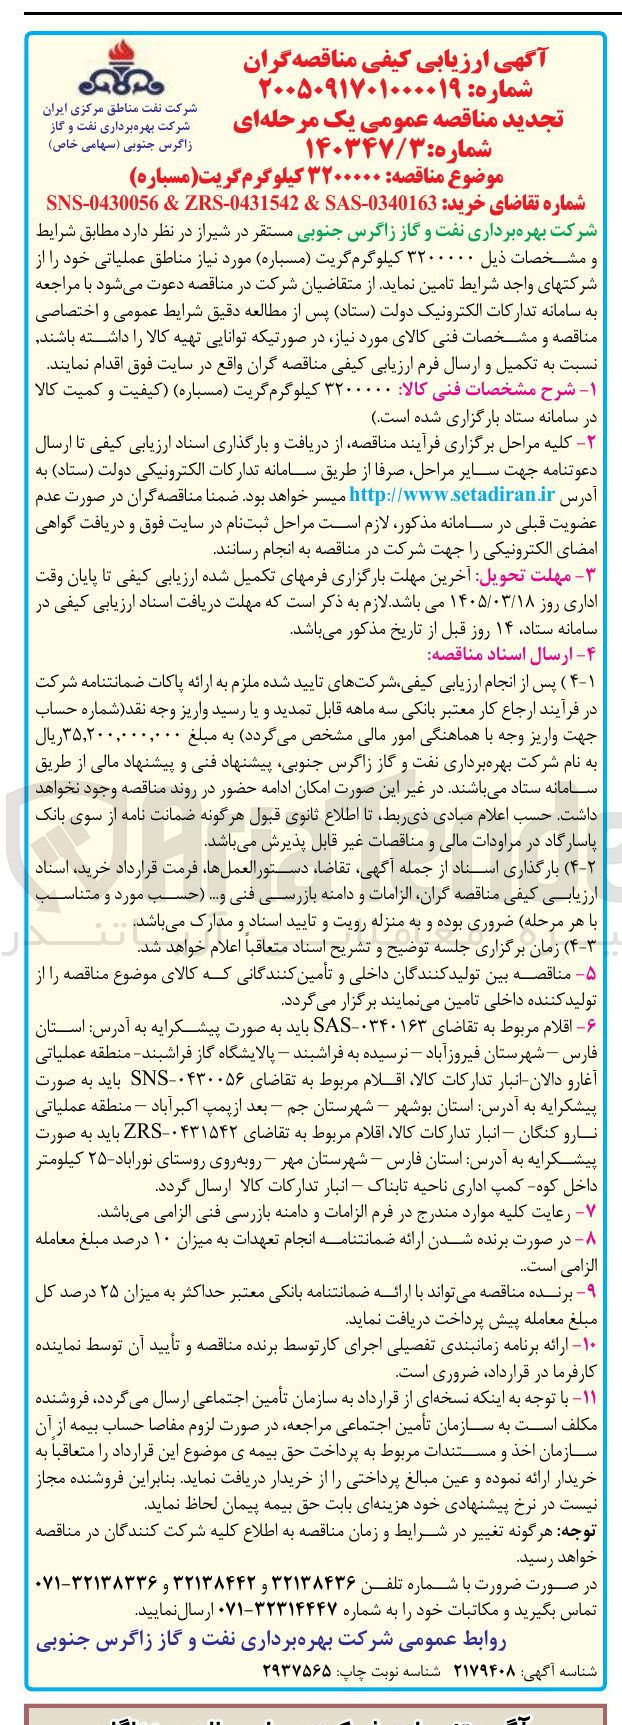 آگهی ارزیابی کیفی مناقصه‌گران
شماره: ۲۰۰۵۰۹۱۷۰۱۰۰۰۰۱۹
تجدید مناقصه عمومی یک مرحله‌ای
شماره:۱۴۰۳۴۷/۳
شرکت نفت مناطق مرکزی ایران
شرکت بهره‌برداری نفت و گاز
زاگرس جنوبی (سهامی خاص)
موضوع مناقصه: ۳۲۰۰۰۰۰ کیلوگرم‌گریت(مسباره)
شماره تقاضای خرید: SNS-0430056 & ZRS-0431542 & SAS-0340163
شرکت بهره‌برداری نفت و گاز زاگرس جنوبی مستقر در شیراز در نظر دارد مطابق شرایط
و مشــخصات ذیل ۳۲۰۰۰۰۰ کیلوگرم‌گریت (مسباره) مورد نیاز مناطق عملیاتی خود را از
شرکتهای واجد شرایط تامین نماید. از متقاضیان شرکت در مناقصه دعوت می‌شود با مراجعه
به سامانه تدارکات الکترونیک دولت (ستاد) پس از مطالعه دقیق شرایط عمومی و اختصاصی
مناقصه و مشــخصات فنی کالای مورد نیاز، در صورتیکه توانایی تهیه کالا را داشــته باشند،
نسبت به تکمیل و ارسال فرم ارزیابی کیفی مناقصه گران واقع در سایت فوق اقدام نمایند.
۱- شرح مشخصات فنی کالا: ۳۲۰۰۰۰۰ کیلوگرم‌گریت (مسباره) (کیفیت و کمیت کالا
در سامانه ستاد بارگزاری شده است.)
۲- کلیه مراحل برگزاری فرآیند مناقصه، از دریافت و بارگذاری اسناد ارزیابی کیفی تا ارسال
دعوتنامه جهت ســایر مراحل، صرفا از طریق ســامانه تدارکات الکترونیکی دولت (ستاد) به
آدرس http://www.setadiran.ir میسر خواهد بود. ضمنا مناقصه‌گران در صورت عدم
عضویت قبلی در ســامانه مذکور، لازم اســت مراحل ثبت‌نام در سایت فوق و دریافت گواهی
امضای الکترونیکی را جهت شرکت در مناقصه به انجام رسانند.
۳- مهلت تحویل: آخرین مهلت بارگزاری فرمهای تکمیل شده ارزیابی کیفی تا پایان وقت
اداری روز ۱۴۰۵/۰۳/۱۸ می باشد.لازم به ذکر است که مهلت دریافت اسناد ارزیابی کیفی در
سامانه ستاد، ۱۴ روز قبل از تاریخ مذکور می‌باشد.
۴- ارسال اسناد مناقصه:
۴-۱ ) پس از انجام ارزیابی کیفی،شرکت‌های تایید شده ملزم به ارائه پاکات ضمانتنامه شرکت
در فرآیند ارجاع کار معتبر بانکی سه ماهه قابل تمدید و یا رسید واریز وجه نقد(شماره حساب
جهت واریز وجه با هماهنگی امور مالی مشخص می‌گردد) به مبلغ ۳۵,۲۰۰,۰۰۰,۰۰۰ریال
به نام شرکت بهره‌برداری نفت و گاز زاگرس جنوبی، پیشنهاد فنی و پیشنهاد مالی از طریق
ســامانه ستاد می‌باشند. در غیر این صورت امکان ادامه حضور در روند مناقصه وجود نخواهد
داشت. حسب اعلام مبادی ذی‌ربط، تا اطلاع ثانوی قبول هرگونه ضمانت نامه از سوی بانک
پاسارگاد در مراودات مالی و مناقصات غیر قابل پذیرش می‌باشد.
۴-۲) بارگذاری اســناد از جمله آگهی، تقاضا، دســتورالعمل‌ها، فرمت قرارداد خرید، اسناد
ارزیابــی کیفی مناقصه گران، الزامات و دامنه بازرســی فنی و... (حســب مورد و متناســب
با هر مرحله) ضروری بوده و به منزله رویت و تایید اسناد و مدارک می‌باشد.
۴-۳) زمان برگزاری جلسه توضیح و تشریح اسناد متعاقباً اعلام خواهد شد.
۵- مناقصــه بین تولیدکنندگان داخلی و تأمین‌کنندگانی کــه کالای موضوع مناقصه را از
تولیدکننده داخلی تامین می‌نمایند برگزار می‌گردد.
۶- اقلام مربوط به تقاضای SAS-۰۳۴۰۱۶۳ باید به صورت پیشــکرایه به آدرس: اســتان
فارس – شهرستان فیروزآباد – نرسیده به فراشبند – پالایشگاه گاز فراشبند- منطقه عملیاتی
آغارو دالان-انبار تدارکات کالا، اقــلام مربوط به تقاضای SNS-۰۴۳۰۰۵۶ باید به صورت
پیشکرایه به آدرس: استان بوشهر – شهرستان جم – بعد ازپمپ اکبرآباد – منطقه عملیاتی
نــارو کنگان – انبار تدارکات کالا، اقلام مربوط به تقاضای ZRS-۰۴۳۱۵۴۲ باید به صورت
پیشــکرایه به آدرس: استان فارس – شهرستان مهر – روبه‌روی روستای نوراباد-۲۵ کیلومتر
داخل کوه- کمپ اداری ناحیه تابناک – انبار تدارکات کالا ارسال گردد.
۷- رعایت کلیه موارد مندرج در فرم الزامات و دامنه بازرسی فنی الزامی می‌باشد.
۸- در صورت برنده شــدن ارائه ضمانتنامــه انجام تعهدات به میزان ۱۰ درصد مبلغ معامله
الزامی است..
۹- برنــده مناقصه می‌تواند با ارائــه ضمانتنامه بانکی معتبر حداکثر به میزان ۲۵ درصد کل
مبلغ معامله پیش پرداخت دریافت نماید.
۱۰- ارائه برنامه زمانبندی تفصیلی اجرای کارتوسط برنده مناقصه و تأیید آن توسط نماینده
کارفرما در قرارداد، ضروری است.
۱۱- با توجه به اینکه نسخه‌ای از قرارداد به سازمان تأمین اجتماعی ارسال می‌گردد، فروشنده
مکلف اســت به ســازمان تأمین اجتماعی مراجعه، در صورت لزوم مفاصا حساب بیمه از آن
ســازمان اخذ و مســتندات مربوط به پرداخت حق بیمه ی موضوع این قرارداد را متعاقباً به
خریدار ارائه نموده و عین مبالغ پرداختی را از خریدار دریافت نماید. بنابراین فروشنده مجاز
نیست در نرخ پیشنهادی خود هزینه‌ای بابت حق بیمه پیمان لحاظ نماید.
توجه: هرگونه تغییر در شــرایط و زمان مناقصه به اطلاع کلیه شرکت کنندگان در مناقصه
خواهد رسید.
در صــورت ضرورت با شــماره تلفــن ۳۲۱۳۸۴۳۶ و ۳۲۱۳۸۴۴۲ و ۳۲۱۳۸۳۳۶-۰۷۱
تماس بگیرید و مکاتبات خود را به شماره ۳۲۳۱۴۴۴۷-۰۷۱ ارسال‌نمایید.
روابط عمومی شرکت بهره‌برداری نفت و گاز زاگرس جنوبی
شناسه آگهی: ۲۱۷۹۴۰۸ شناسه نوبت چاپ: ۲۹۳۷۵۶۵